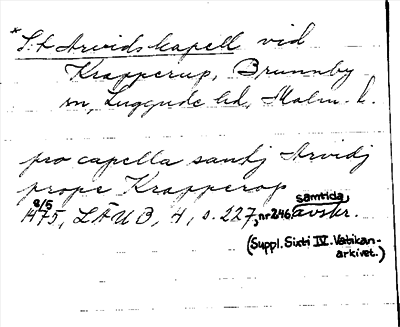 *S:t Arvids kapell vid
Krapperup, Brunnby
sn, Luggude hd, Malm. l.
pro capella santj Arvidj
prope Krapperop
8/5 1475, LÄUB, 4, s. 227, nr 246 samtida avskr.
(Suppl. Sixti IV. Vatikan-
arkivet.)